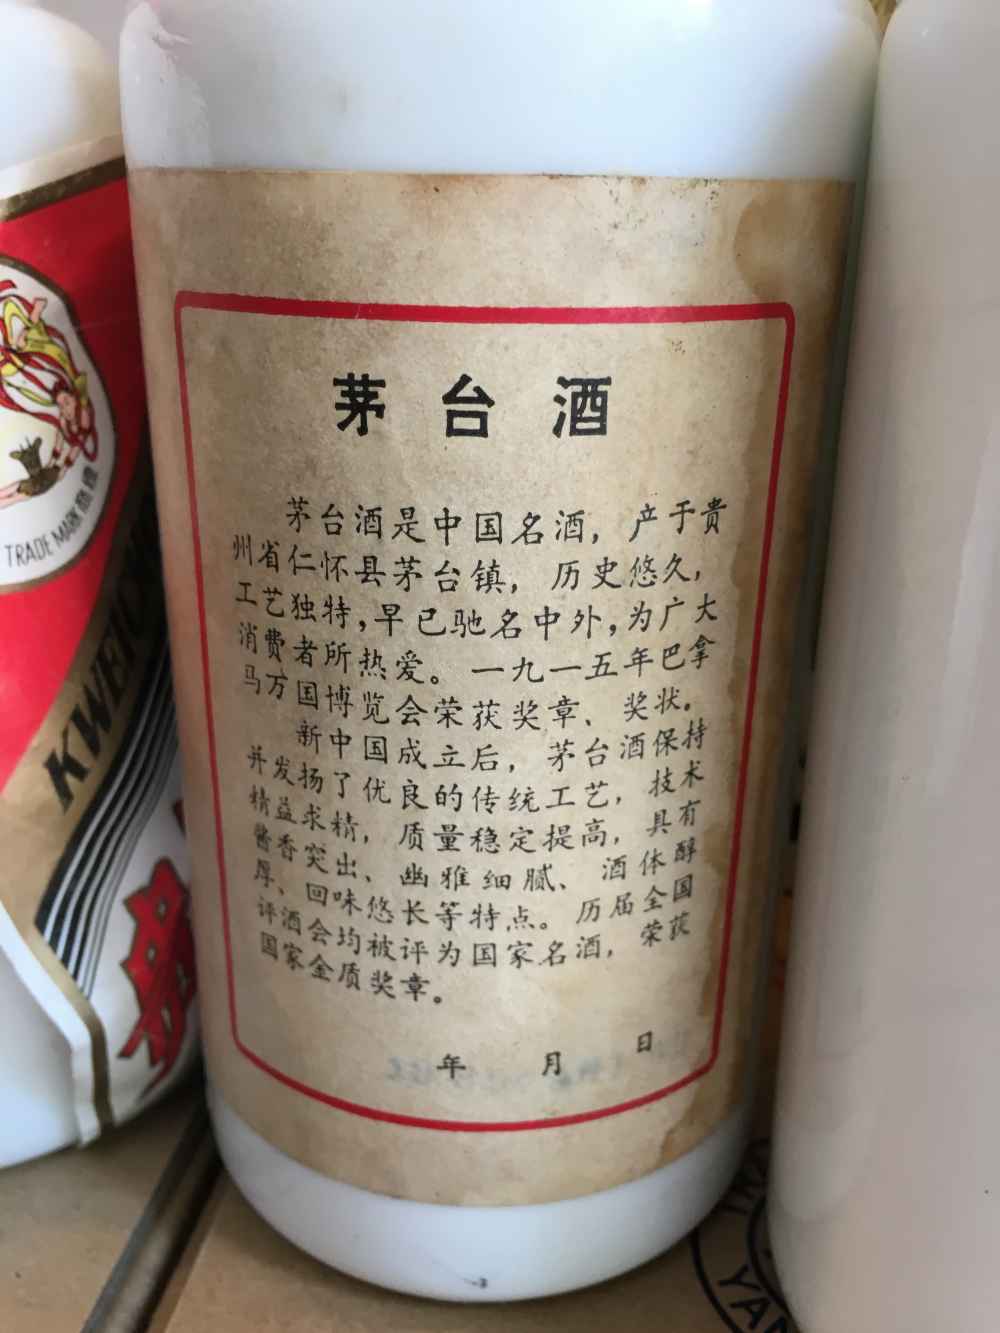 茅台酒
茅台酒是中国名酒，产于贵
州省仁怀县茅台镇，历史悠久，
工艺独特，早已驰名中外，为广大
消费者所热爱。一九一五年巴拿
马万国博览会荣获奖章、奖状。
新中国成立后，茅台酒保持
并发扬了优良的传统工艺，技术
精益求精，质量稳定提高，具有
酱香突出、幽雅细腻、酒体醇
厚、回味悠长等特点。历届全国
评酒会均被评为国家名酒，荣获
国家金质奖章。
年 月 日
TRADE MARK
KWEICH
YAN